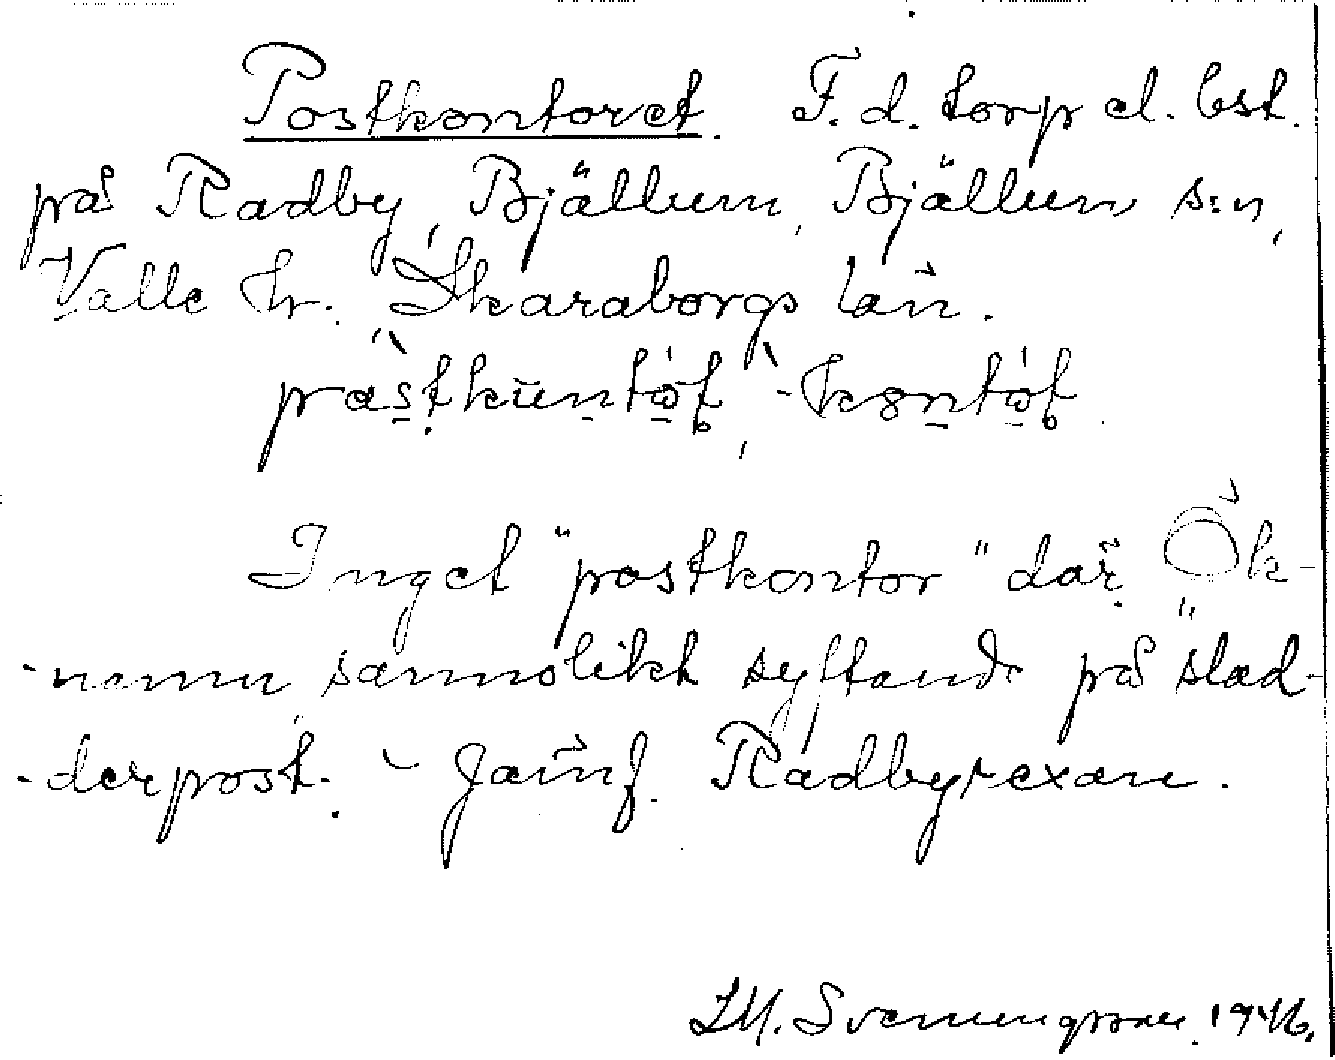 Postkontoret. F. d. torp el. bst.
på Radby, Bjällum, Bjällum s:n,
Valle hr. Skaraborgs län.
Inget "postkontor" där. Ök-
-namn sannolikt syftande på "slad-
-derpost. - Jämf. Radbyrexan.
1946.